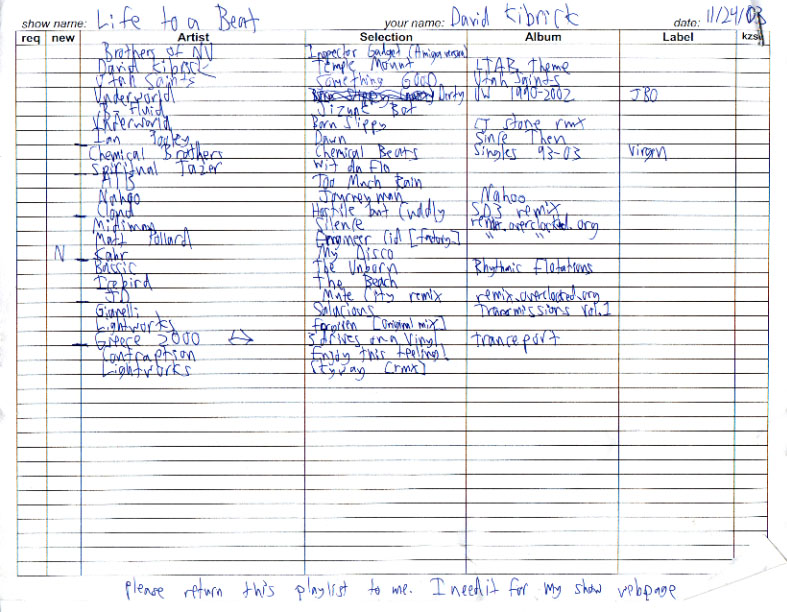 show name: Life to a Beat your name: David Kibrick date: 11/24/03
req new Artist Selection Album Label kzsu
Brothers of NV Inspector Gadget (Amiga version)
David Kibrick Temple Mount LTAB Theme
Utah Saints Something Good Utah Saints
Underworld Dirty UW 1990-2002 JBO
Fluid Bot
Underworld Born Slippy CJ Stone rmx
Ian Dawn Since Then
Chemical Brothers Chemical Beats Singles 93-03 Virgin
Spiritual Tazer wit da Flo
ATB Too Much Rain
Nahoo Journeyman Nahoo
Cloud Hostile but Cuddly SD3 remix
Midiman Silence remix.overclocked.org
Matt Pollard Engineer Cid [factory] " "
N Kahr My Disco
Bassic The Unborn Rhythmic Flotations
Icebird The Beach
JD Mute City remix remix.overclocked.org
Gianelli Salacious Transmissions vol.1
Lightworks Forgiven [original mix]
Greece 2000 <-> 3 drives on a Vinyl tranceport
Contraption Enjoy this feeling!
Lightworks [rmx]
please return this playlist to me. I need it for my show webpage